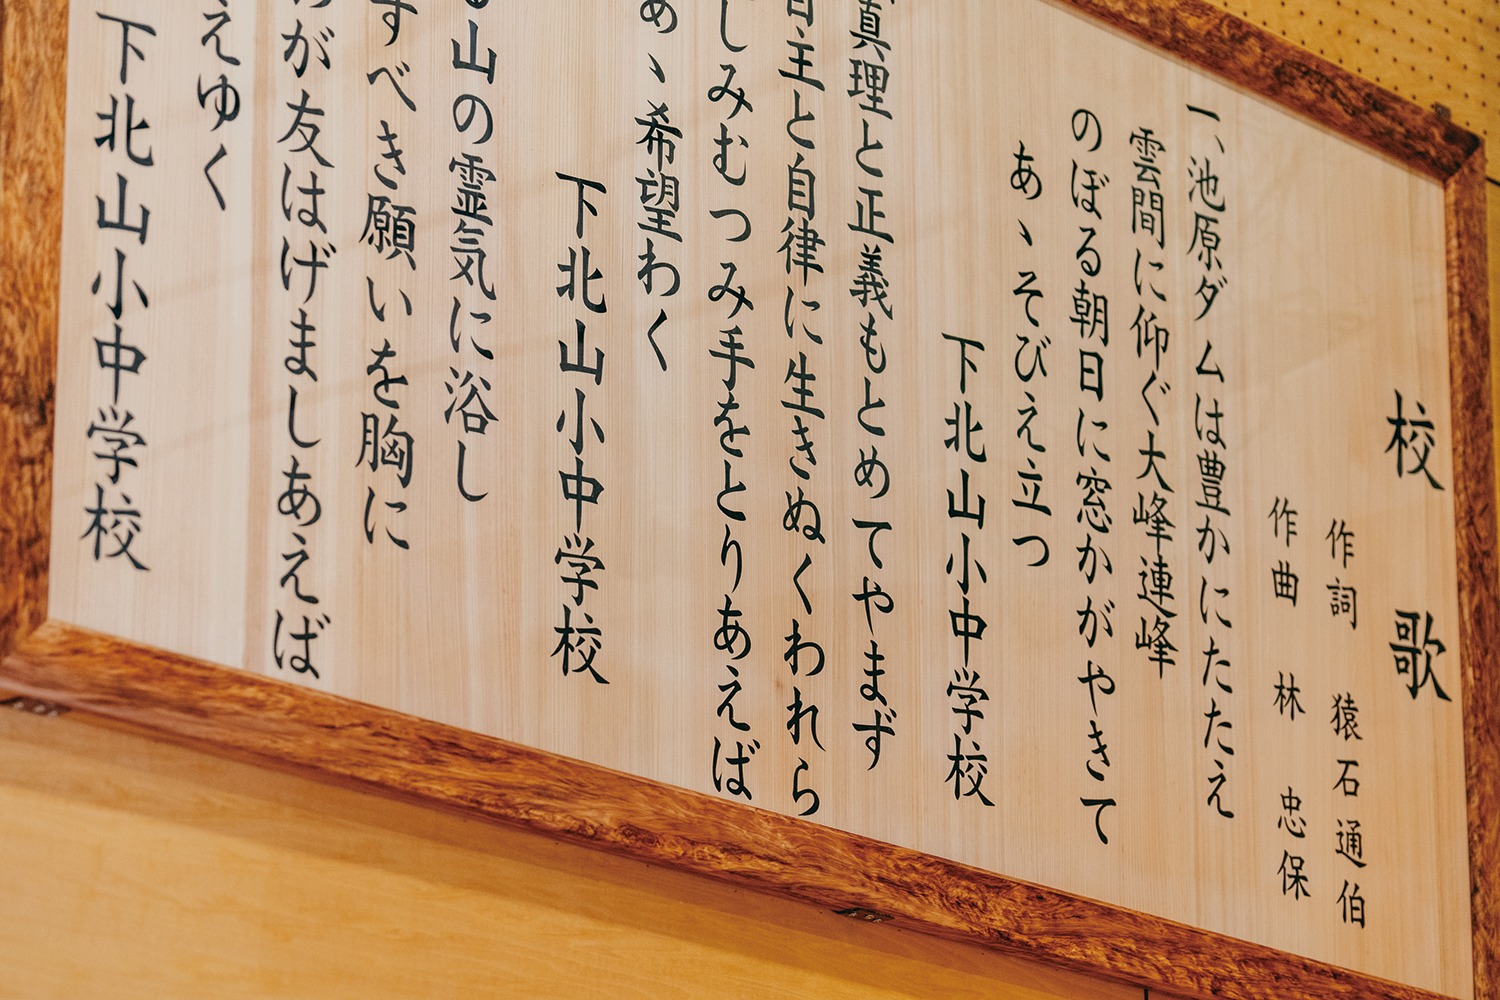 校歌
作詞 猿石通伯
作曲 林 忠保
一、池原ダムは豊かにたたえ
雲間に仰ぐ大峰連峰
のぼる朝日に窓かがやきて
あゝそびえ立つ
下北山小中学校
真理と正義もとめてやまず
主と自律に生きぬくわれら
しみむつみ手をとりあえば
あゝ希望わく
下北山小中学校
山の霊気に浴し
すべき願いを胸に
が友はげましあえば
えゆく
下北山小中学校